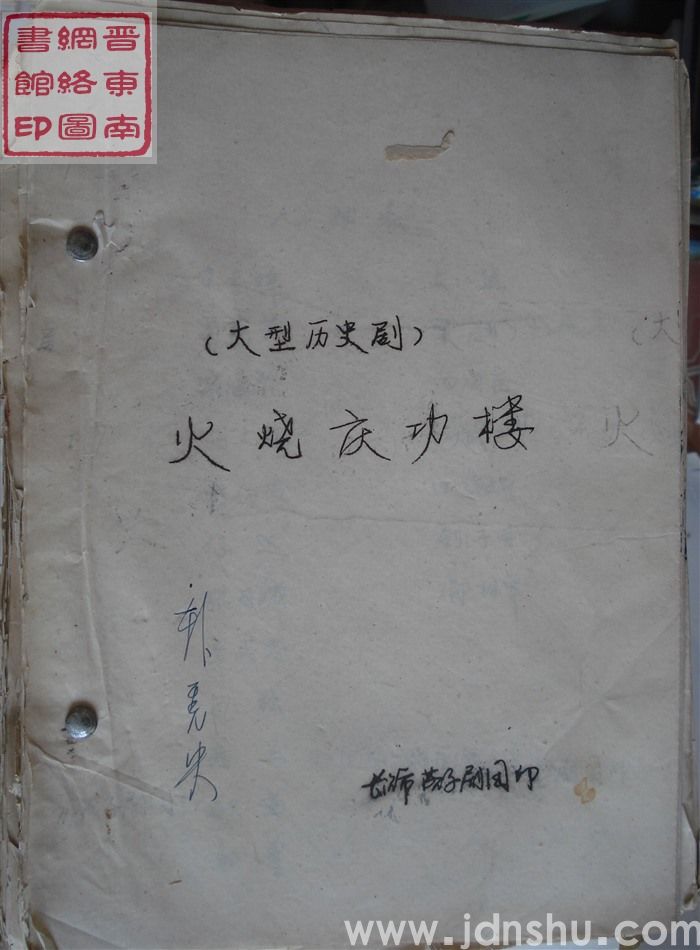 晋東南
網絡圖
書館印
（大型历史剧）
火烧庆功楼
长治市落子剧团印
www.jdnshu.com